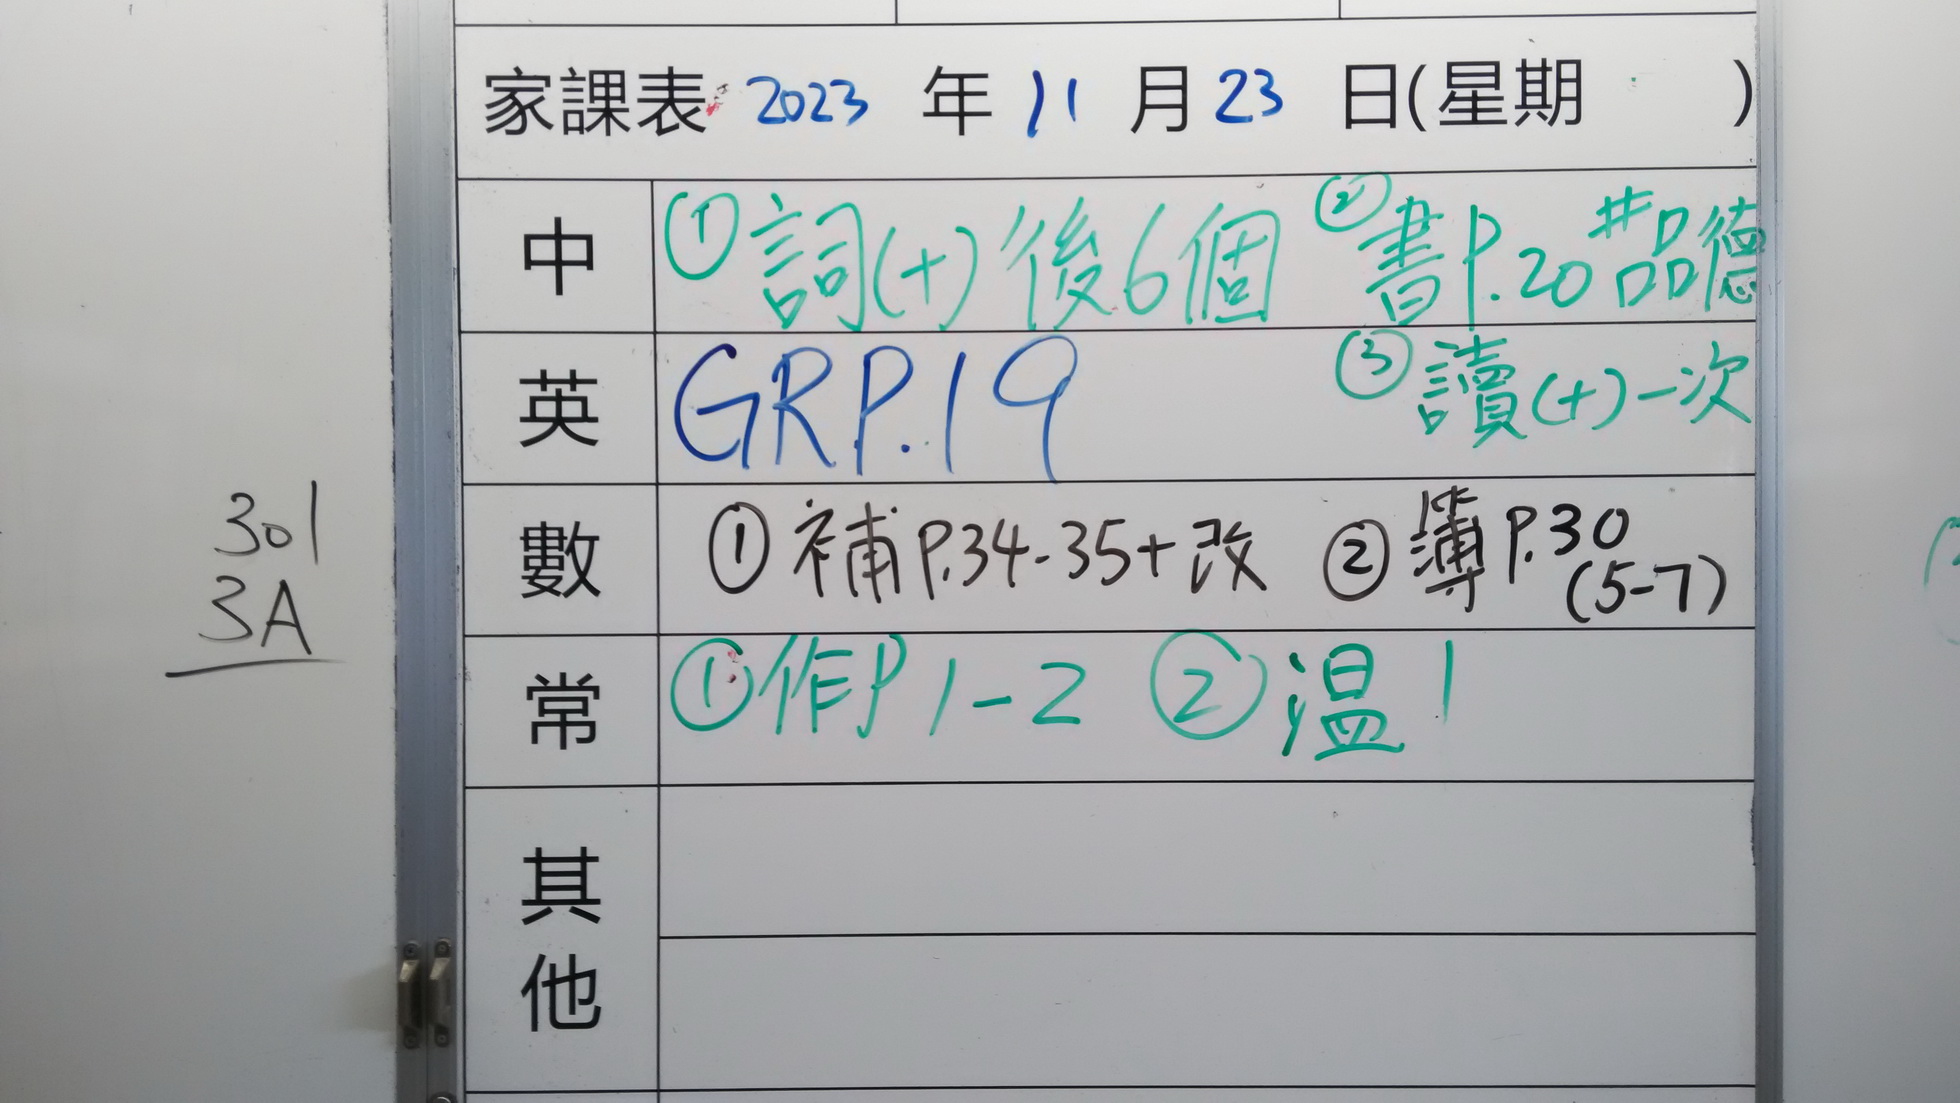 家課表 2023 年 11 月 23 日(星期 )
中 ①詞(十)後6個 ②書P.20#品德
③讀(十)一次
英 GRP.19
數 ①補P.34-35+改 ②簿P.30
(5-7)
常 ①作P1-2 ②溫1
其他
301
3A